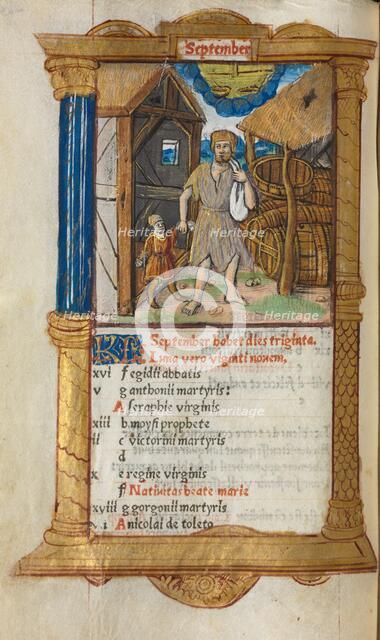 September
September habet dies triginta.
Luna vero viginti novem.
xvi f egidii abbatis
v g anthonii martyris:
A seraphie virginis
xiii b moysi prophete
ii c victorini martyris
d
x e regine virginis
f Nativitas beate marie
xviii g gorgonii martyris
A nicolai de toleto
Heritage
Heritage
Heritage
Heritage
Heritage
Heritage
Heritage